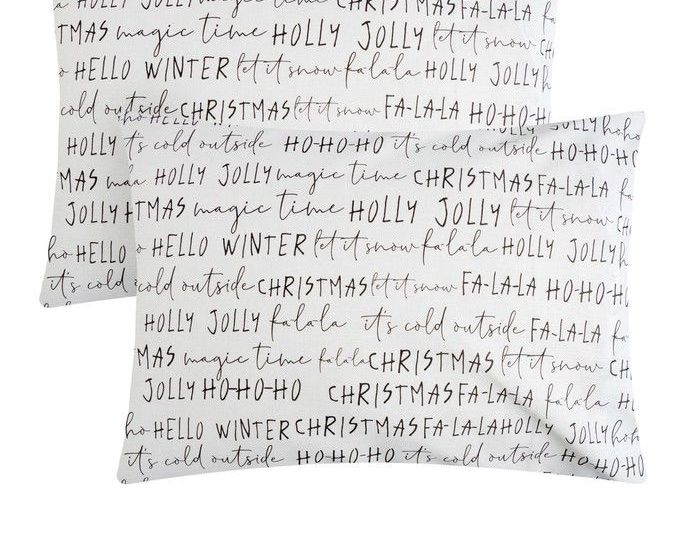 HOLLY JOLLY magic time CHRISTMAS FA-LA-LA fa
TMAS magic time HOLLY JOLLY let it snow CH
o HELLO WINTER let it snow falala HOLLY JOLLY ho
cold outside CHRISTMAS let it snow FA-LA-LA HO-HO-HO
HOLLY
MAS ma
JOLLY H
ho HELLO
it's cold
ho HELLO JOLLY hoho
it's cold outside HO-HO-HO it's cold outside HO-HO-HO
HOLLY JOLLY magic time CHRISTMAS FA-LA-LA fa
TMAS magic time HOLLY JOLLY let it snow CH
o HELLO WINTER let it snow falala HOLLY JOLLY h
cold outside CHRISTMAS let it snow FA-LA-LA HO-HO-HO
HOLLY JOLLY falala it's cold outside FA-LA-LA fa
MAS magic time falala CHRISTMAS let it snow
JOLLY HO-HO-HO CHRISTMAS FA-LA-LA falala HO
ho HELLO WINTER CHRISTMAS FA-LA-LA HOLLY JOLLY hoh
it's cold outside HO-HO-HO it's cold outside HO-HO-HO